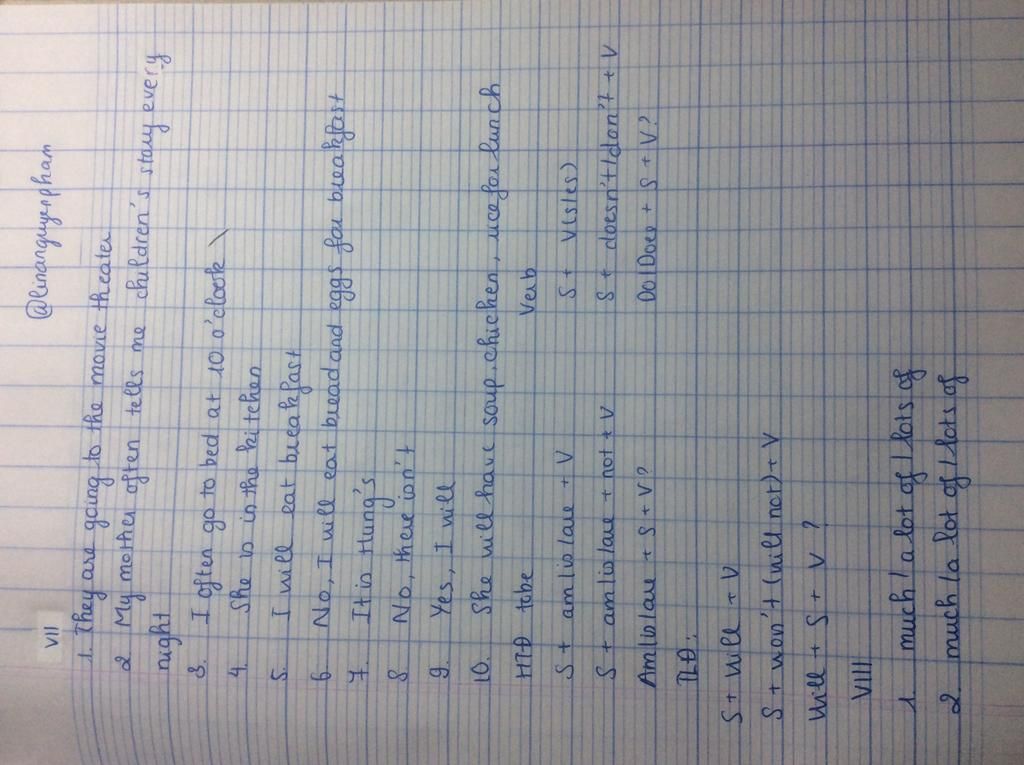 @linanguyenpham
VII
1. They are going to the movie theater
2. My mother often tells me children's story every
night
3. I often go to bed at 10 o'clock
4. She is in the kitchen
5. I will eat breakfast
6. No, I will eat bread and eggs for breakfast
7. It is Hung's
8. No, there isn't
9. Yes, I will
10. She will have soup, chicken, rice for lunch
HTĐ tobe Verb
S + am/is/are + V S + V(s/es)
S + am/is/are + not + V S + doesn't/don't + V
Am/is/are + S + V? Do/Does + S + V?
TLĐ:
S + will + V
S + won't (will not) + V
Will + S + V ?
VIII
1. much/ a lot of / lots of
2. much/a lot of / lots of